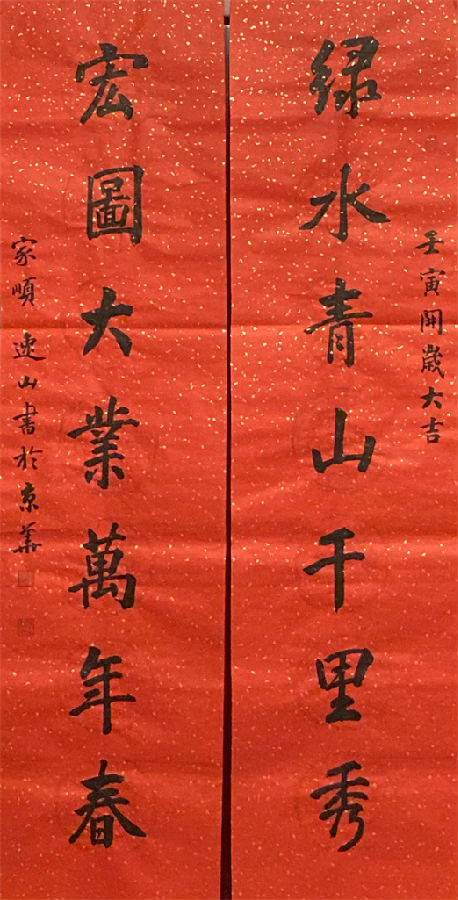 壬寅開歲大吉
绿水青山千里秀
宏圖大業萬年春
家順 速山書於京華